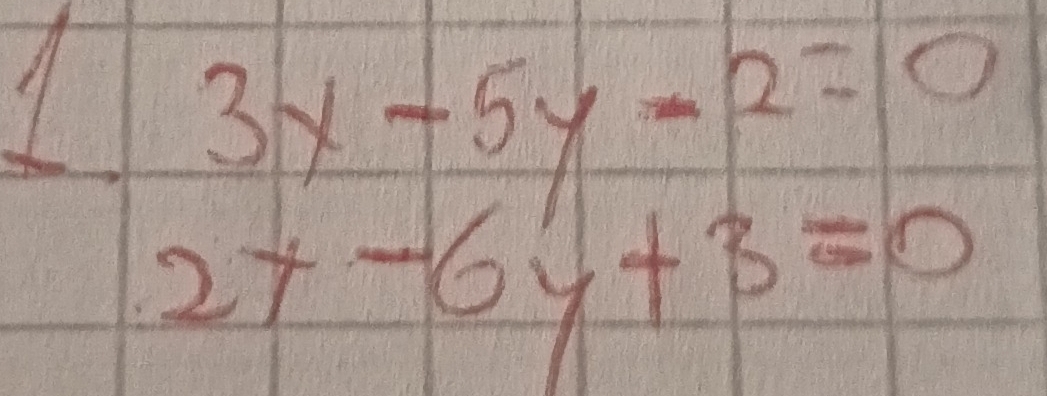 1. 3x - 5y - 2 = 0
2x - 6y + 3 = 0